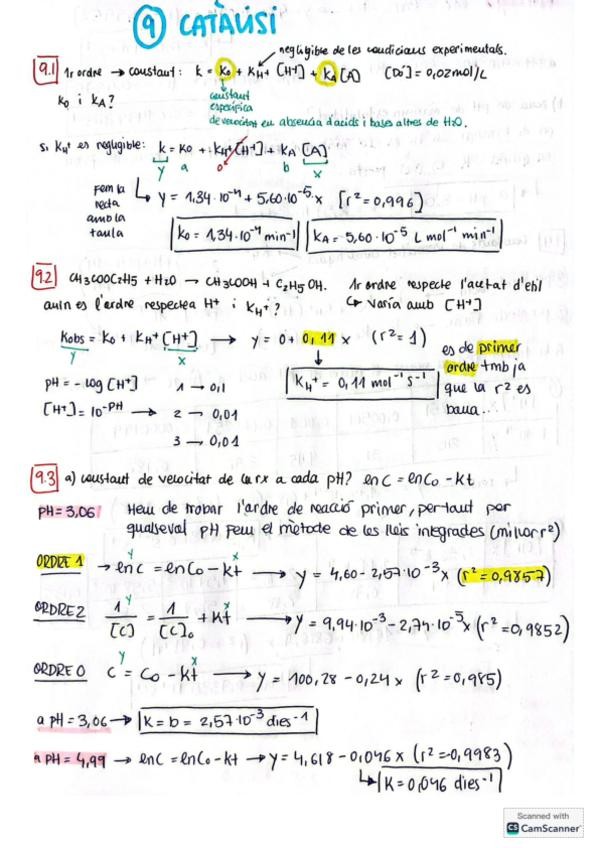 9 CATÀLISI
negligible de les condicions experimentals.
9.1 1r ordre → constant: k = k0 + KH+ [H+] + kA [A] [D0] = 0,02 mol/L
k0 i kA?
constant
específica
de velocitat en absència d'àcids i bases altres de H2O.
si KH+ es negligible: k = k0 + KH+ [H+] + kA [A]
y a 0 b x
Fem la
recta
amb la
taula
y = 1,34·10⁻⁴ + 5,60·10⁻⁵ x [r² = 0,996]
k0 = 1,34·10⁻⁴ min⁻¹ kA = 5,60·10⁻⁵ L mol⁻¹ min⁻¹
9.2 CH3COOC2H5 + H2O → CH3COOH + C2H5OH. 1r ordre respecte l'acetat d'etil
quin es l'ordre respecte a H+ i KH+? ↳ varia amb [H+]
Kobs = K0 + KH+ [H+] → y = 0 + 0,11 x (r² = 1)
y x
es de primer
ordre tmb ja
que la r² es
bona..
KH+ = 0,11 mol⁻¹ s⁻¹
pH = - log [H+] 1 → 0,1
[H+] = 10⁻ᵖᴴ → 2 → 0,01
3 → 0,01
9.3 a) constant de velocitat de la rx a cada pH? lnC = lnC0 - kt
pH = 3,06 Hem de trobar l'ordre de reacció primer, per tant per
qualsevol pH fem el mètode de les lleis integrades (millor r²)
ORDRE 1 → lnC = lnC0 - kt → y = 4,60 - 2,57·10⁻³ x (r² = 0,9857)
y x
ORDRE 2 1/[C] = 1/[C]0 + kt → y = 9,94·10⁻³ - 2,74·10⁻⁵ x (r² = 0,9852)
y x
ORDRE 0 C = C0 - kt → y = 100,28 - 0,24 x (r² = 0,985)
y x
a pH = 3,06 → K = b = 2,57·10⁻³ dies⁻¹
a pH = 4,99 → lnC = lnC0 - kt → y = 4,618 - 0,046 x (r² = -0,9983)
↳ K = 0,046 dies⁻¹
Scanned with
CS CamScanner